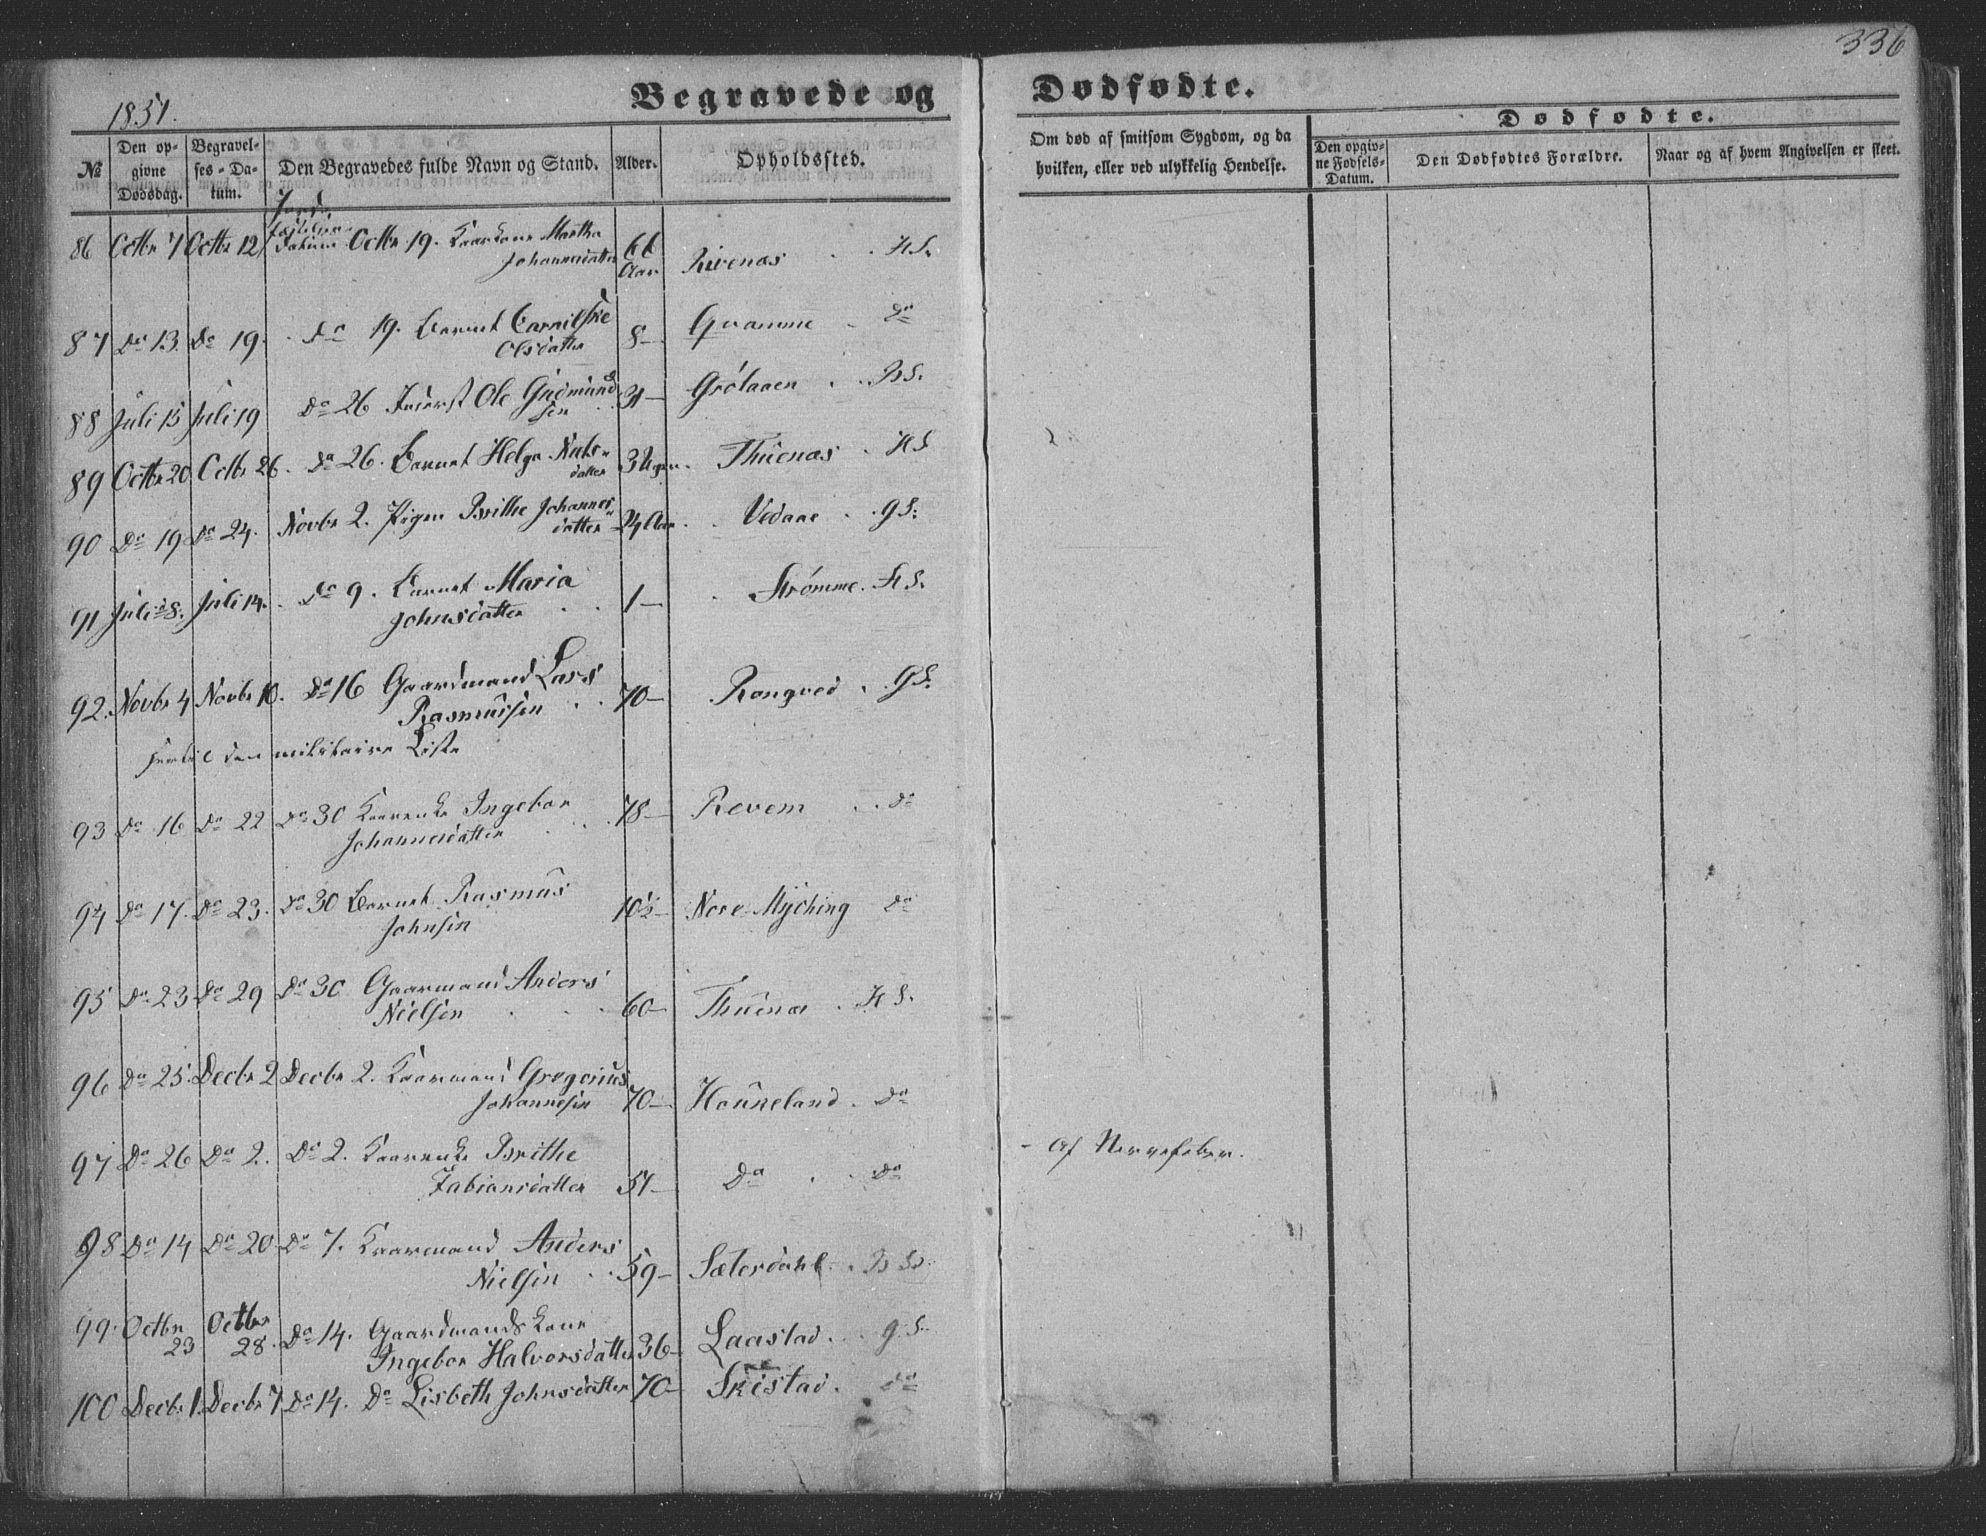 336
1851.
Begravede og Dødfødte.
Dødfødte.
№
Den op-
givne
Dødsdag.
Begravel-
ses-Da-
tum.
Den Begravedes fulde Navn og Stand.
Alder.
Opholdssted.
Om død af smitsom Sygdom, og da
hvilken, eller ved ulykkelig Hendelse.
Den opgiv-
ne Fødsels-
Datum.
Den Dødfødtes Forældre.
Naar og af hvem Angivelsen er skeet.
Jord
86 Octbr 7 Octbr 12 Octbr 19. Kaarkone Martha 66 Rivenæs H S.
Johannesdatter Aar
87 Do 13. Do 19. Do 19. Barnet Olsdatter 8— Gvamme Do
88 Juli 15 Juli 19 Do 26 Inderst Ole Gudmund- 31— Grølaaen B S.
sen
89 Octbr 20 Octbr 26. Do 26. Barnet Helga Nuts- 3 Uger. Thuenæs H S
datter
90 Do 19 Do 24. Novbr 2. Pigen Brithe Johannes- 24 Aar Vedaae G S.
datter
91 Juli 8. Juli 14. Do 9. Barnet Maria 1— Strømme. H S.
Johnsdatter
92. Novbr 4 Novbr 10. Do 16 Gaardmand Lars 70— Rongved G S.
Rasmussen
den militaire Liste
93 Do 16 Do 22 Do 30 Kaarenke Ingebor 78— Revem Do
Johannesdatter
94 Do 17. Do 23. Do 30 Barnet Rasmus 10½— Nore Myching Do
Johnsen
95 Do 23 Do 29 Do 30 Gaarmand Anders 60— Thuenæs H S.
Nielsen
96 Do 25. Decbr 2 Decbr 2. Kaarmand Gregorius 70— Houneland Do
Johannesen
97 Do 26 Do 2. Do 2. Kaarenke Brithe
Fabiansdatter 51— Do Do - Af Nervefeber.
98 Do 14 Do 20 Do 7. Kaarmand Anders
Nielsen 59— Sæterdahl B S.
99. Octbr 23 Octbr 28. Do 14. Gaardmands Kone
Ingebor Halvorsdatter 36— Laastad G S.
100 Decbr 1. Decbr 7 Do 14. Do Lisbeth Johnsdatter 70— Skistad. Do